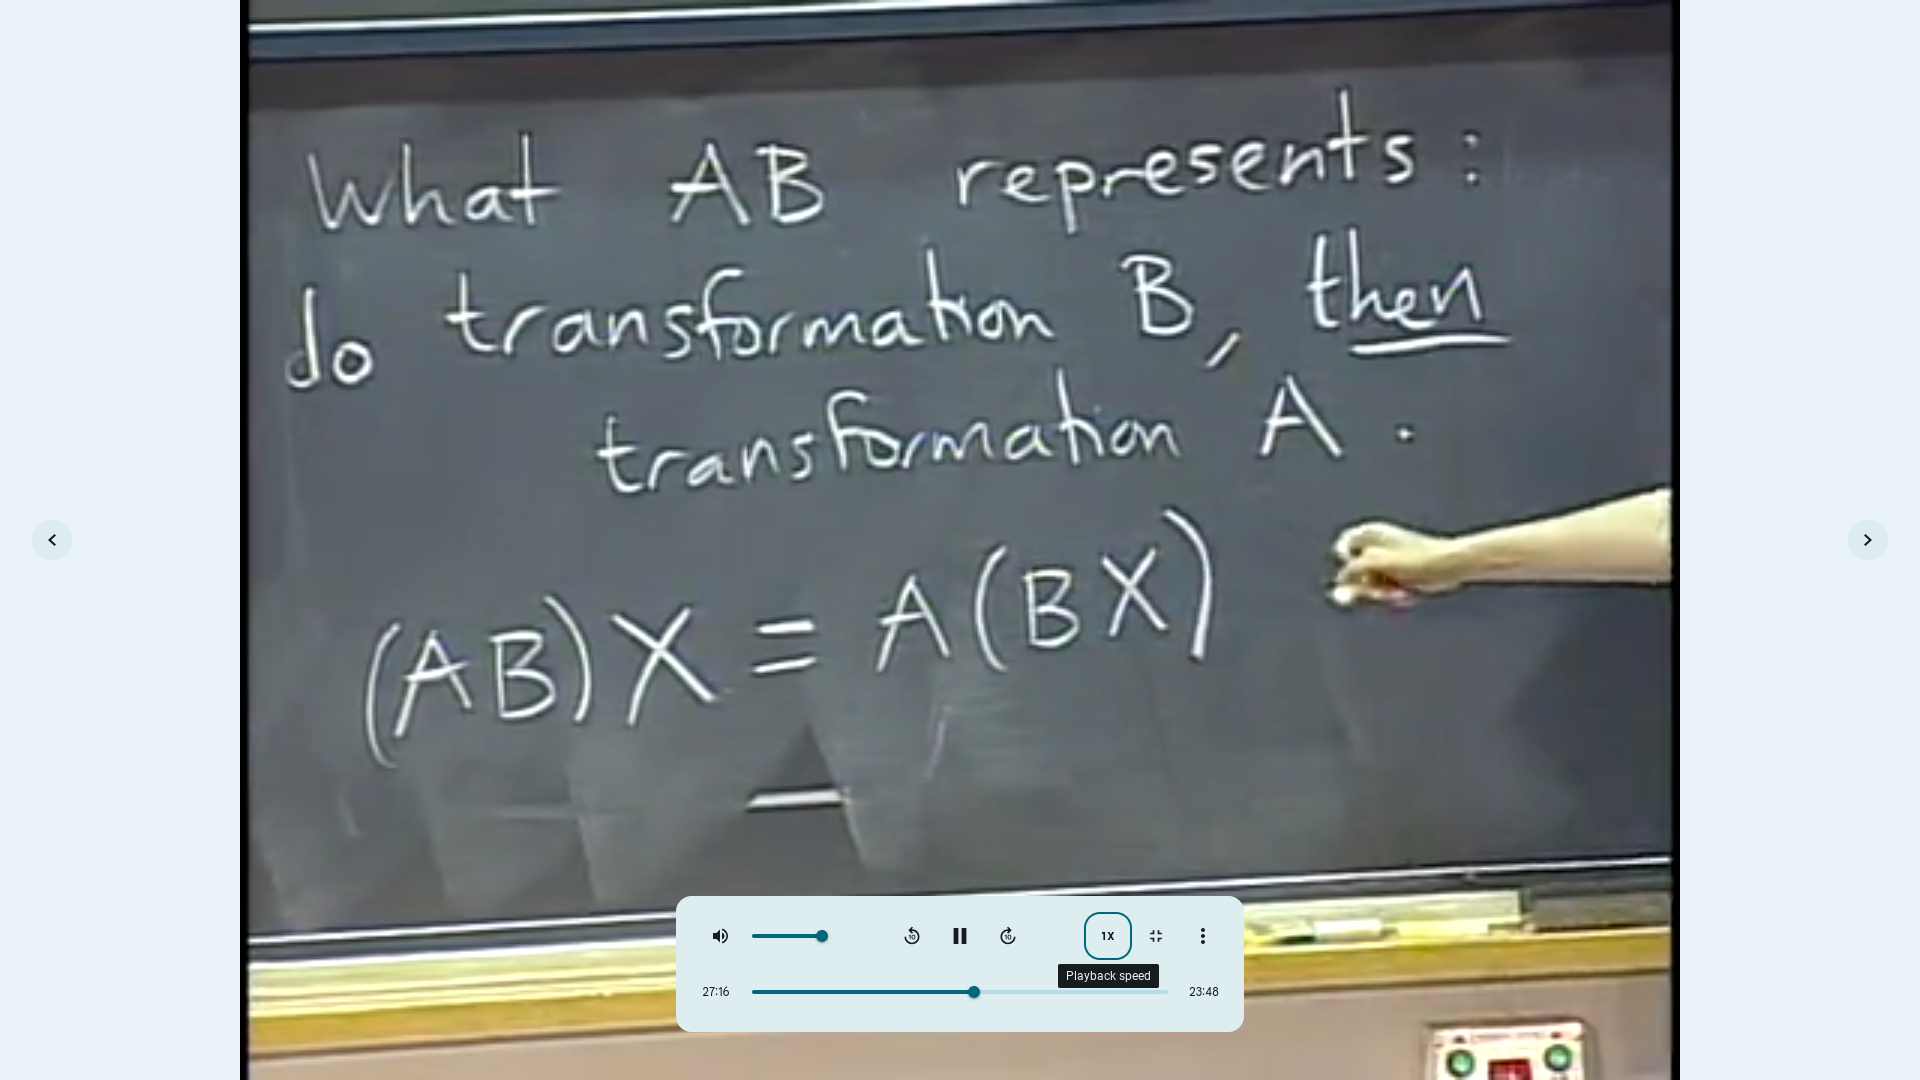 What AB represents:
do transformation B, then
transformation A.
(AB)X = A(BX)
1X
Playback speed
27:16
23:48